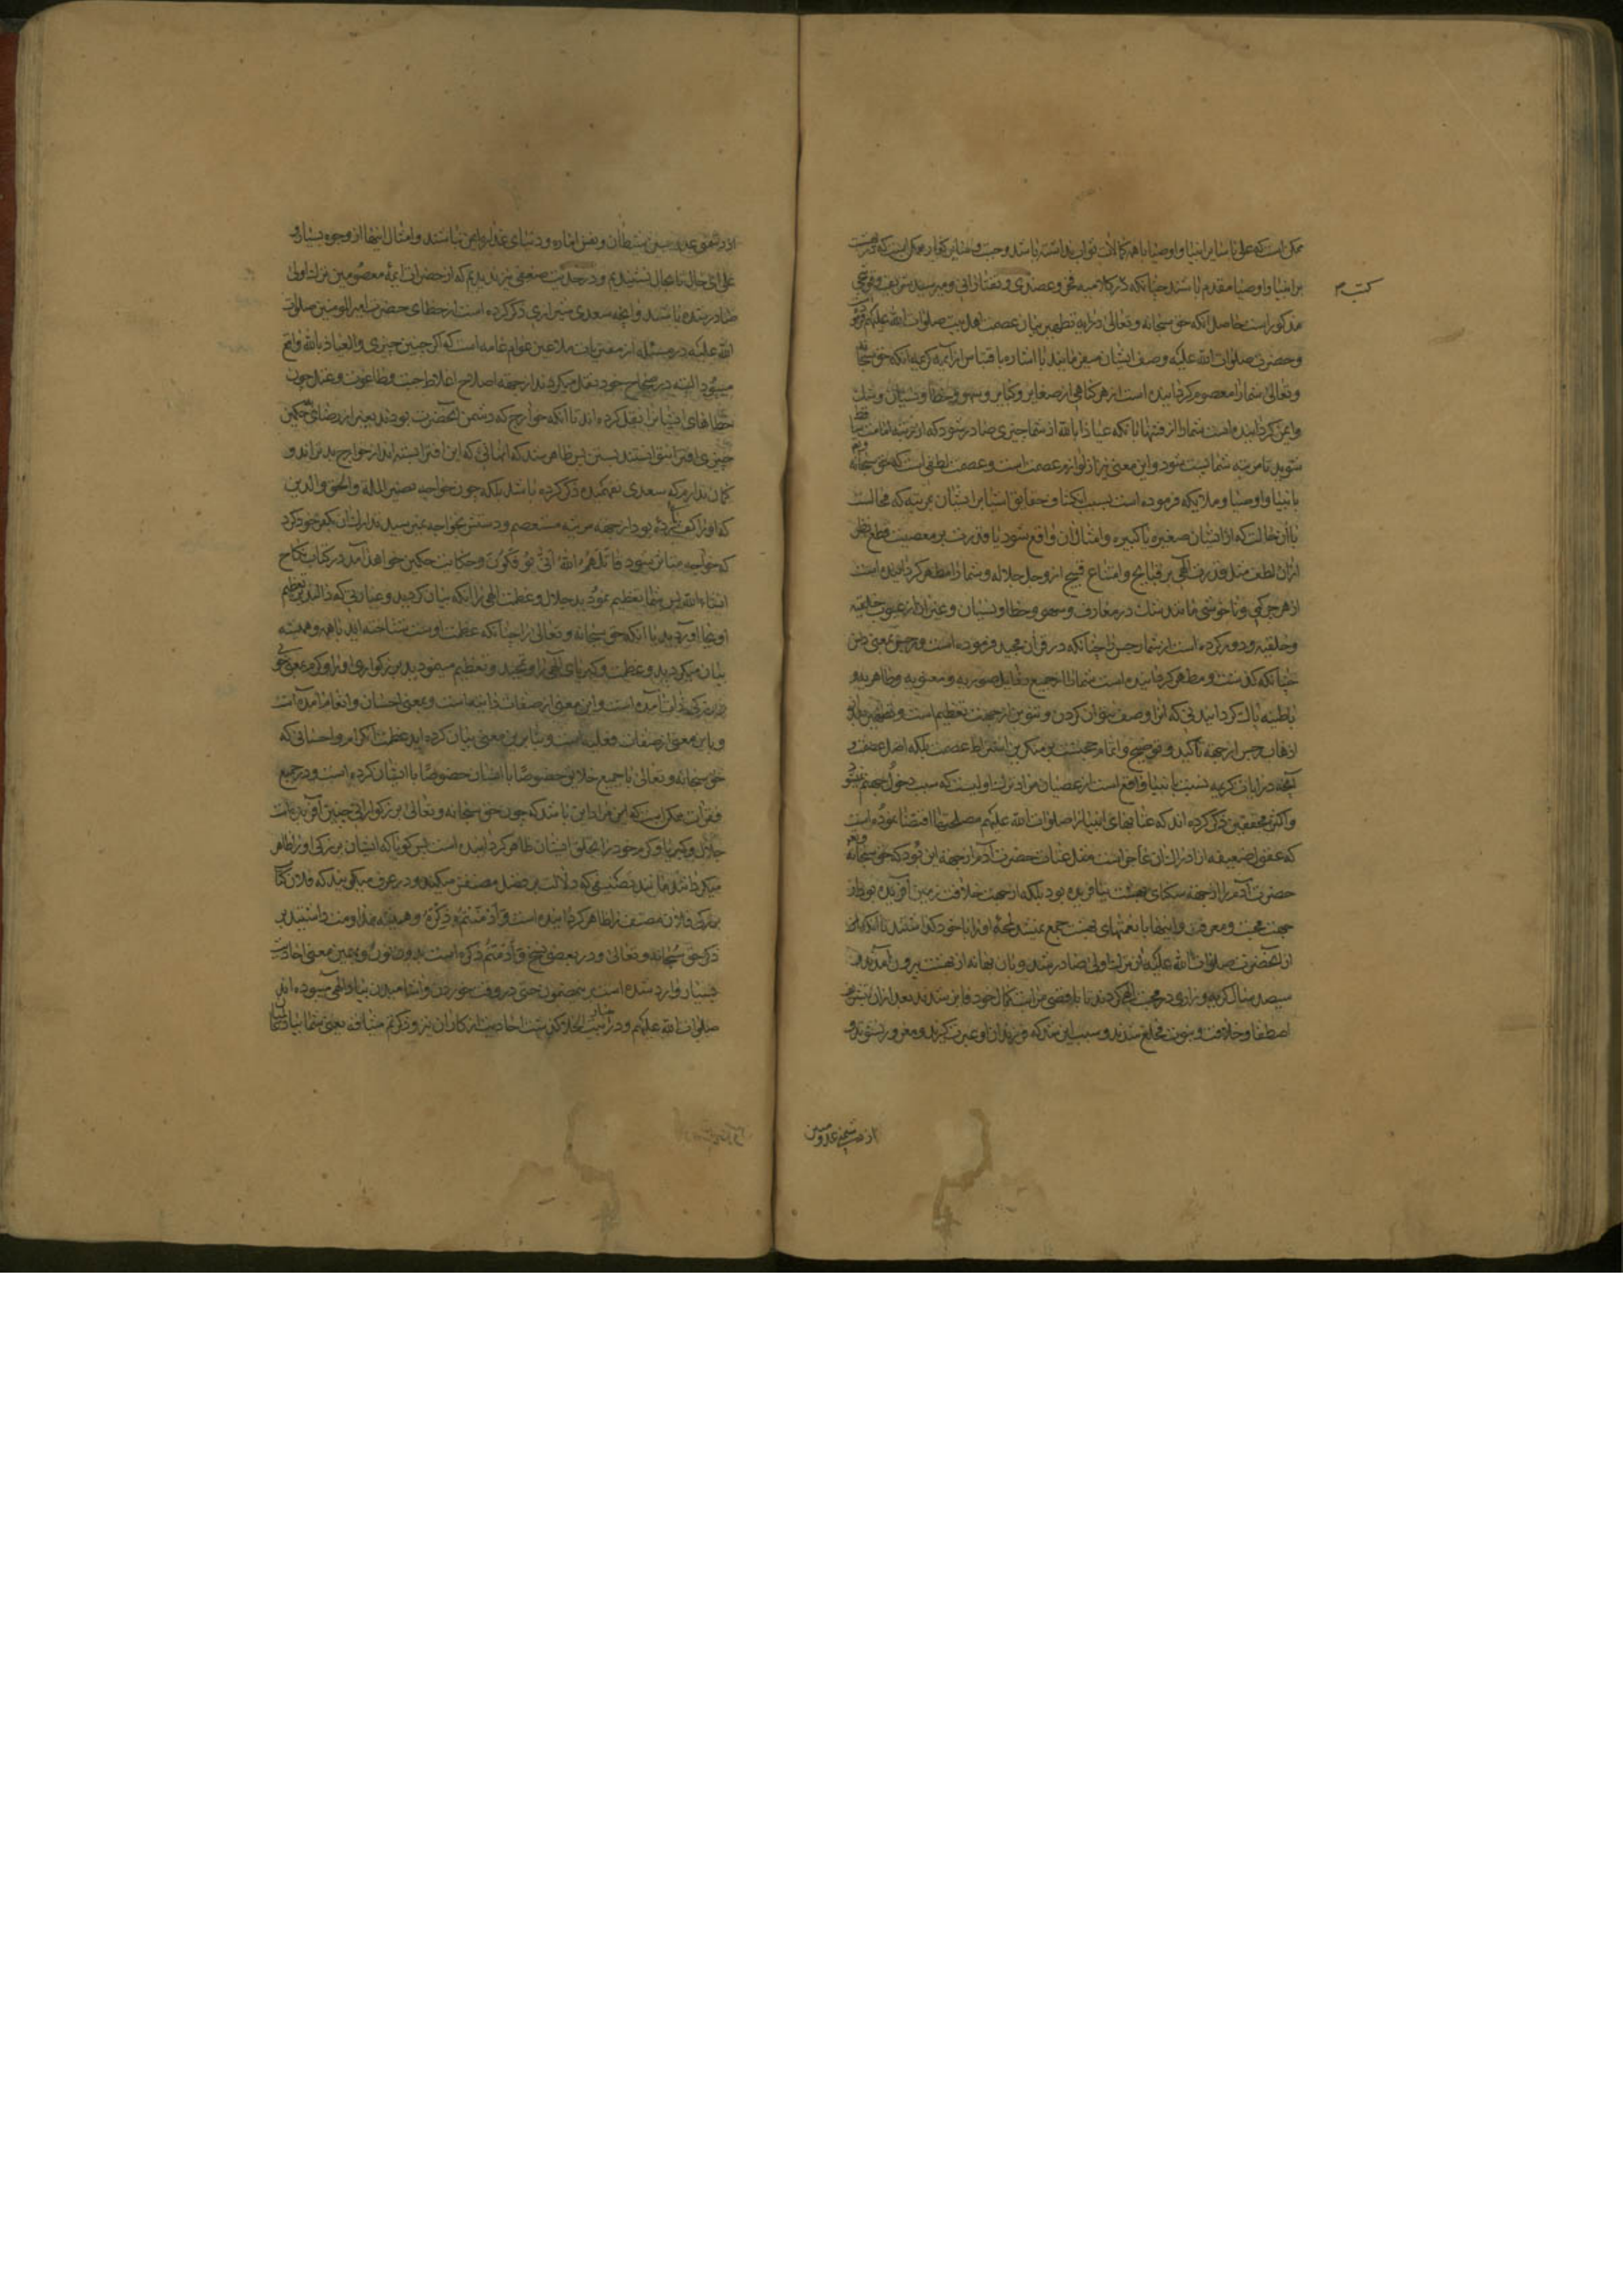 ممکن است که علی با سایر انبیا و اوصیا با همه کمالات توان
بر انبیا و اوصیا مقدم باشند چنانکه در کلام فخر و عضدی و تفتازانی و میر سید شریف و قوشجی
کتب م
مذکور است حاصل آنکه حق سبحانه و تعالی در آیه تطهیر بیان عصمت اهل بیت صلوات الله علیهم
و حضرت صلوات الله علیه وصف ایشان میفرمایند با اشاره با اقتباس از آیه کریمه آنکه حق سبحانه
و تعالی شما را معصوم گردانیده است از هر گناهی از صغایر و کبایر و سهو و خطا و نسیان و شک
و ایمن گردانیده است شما را از فتنها تا آنکه عیاذا بالله از شما چیزی صادر شود که از مرتبه امامت
شوید تا مرتبه شما پست شود و این معنی نیز از لوازم عصمت است و عصمت لطفی است که حق سبحانه
بانبیا و اوصیا و ملایکه فرموده است بسبب انکشاف حقایق اشیا بر ایشان بمرتبه که محالست
با آن حالت که از ایشان صغیره یا کبیره و امثال آن واقع شود با قدرت بر معصیت قطع نظر
از آن لطف مثل قدرت الهی بر قبایح و امتناع قبیح از و جل جلاله و شما را مطهر گردانیده است
از هر چرکی و ناخوشی مانند شک در معارف و سهو و خطا و نسیان و غیر آن از عیوب خلقیه
و خلقیه و دور کرده است از شما رجس را چنانکه در قرآن مجید فرموده است و رجس بمعنی
چنانکه گذشت و مطهر گردانیده است شما را از جمیع رذایل صوریه و معنویه و ظاهریه و
باطنیه پاک گردانیدنی که آنرا وصف نتوان کردن و تنوین از جهت تعظیم است و تطهیر بعد از
اذهاب رجس از جهة تأکید و توضیح و اتمام حجتست بر منکرین اشتراط عصمت بلکه اصل عصمت و
آنچه در آیات کریمه نسبت بانبیا واقع است از عصیان مراد ترک اولیست که سبب دخول جهنم
و اکثر محققین ذکر کرده اند که عتابهای انبیا را صلوات الله علیهم مصلحتها اقتضا نموده است
که عقول ضعیفه از ادراک آن عاجز است مثل عتاب حضرت آدم از جهة این بود که حق سبحانه
حضرت آدم را از جهة سکنای بهشت نیافریده بود بلکه از جهت خلافت زمین آفریده بود و از
جهت محبت و معرفت و اینها با نعمتهای بهشت جمع نمیشد لمحه او را با خود گذاشتند تا آنکه
از آنحضرت صلوات الله علیه آن ترک اولی صادر شد و بآن بهانه از بهشت بیرون آمدند
سیصد سال گریه و زاری در محبت الهی کردند تا باقصی مراتب کمال خود فایز شدند بعد از آن بتشریف
اصطفا و خلافت و نبوت مخلع شدند و سبب این شد که فرزندان او عبرت گیرند و مغرور نشوند و
از دشمنی عدو مبین
از دشمنی عدو مبین شیطان و نفس اماره و دنیای غداره ایمن نباشند و امثال اینها از وجوه بسیار و
علی ای حال تا بحال نشنیدیم و در حدیث ضعیفی نیز ندیدیم که از حضرات ائمه معصومین ترک اولی
صادر شده باشد و آنچه سعدی شیرازی ذکر کرده است از خطای حضرت امیر المومنین صلوات
الله علیه در مسئله از مفتریات ملاعین عوام عامه است که اگر چنین چیزی و العیاذ بالله واقع
میبود البته در صحاح خود نقل میکردند از جهة اصلاح اغلاط جبت و طاغوت و عجل چون
خطاهای ایشانرا نقل کرده اند تا آنکه خوارج که دشمن آنحضرت بودند بغیر از رضای بحکمین
چیزی افترا نتوانستند بستن پس ظاهر شد که آنهائی که این افترا بسته اند از خوارج بدتر اند و
گمان ندارم که سعدی نفهمیده ذکر کرده باشد بلکه چون خواجه نصیر الملة و الحق و الدین
که او را کفش کرده بود از جهة مرثیه مستعصم و دستش بخواجه نمیرسید تدارک آن بکفر خود کرد
که خواجه متاثر شود قاتلهم الله انی یؤفکون و حکایت حکمین خواهد آمد در کتاب نکاح
انشاء الله پس شما تعظیم نمودید جلال و عظمت الهی را آنکه بیان کردید و عبارتی که دال بر تعظیم
او بجا آوردید با آنکه حق سبحانه و تعالی را چنانکه عظمت اوست شناخته اید با همه و همیشه
بیان میکردید و عظمت و کبریای الهی را و تمجید و تعظیم مینمودید بزرگواری او را و کرم بمعنی
بزرگی ذات آمده است و این معنی از صفات ذاتیه است و بمعنی احسان و انعام آمده است
و باین معنی از صفات فعلیه است و بنا برین معنی بیان کرده اید عظمت اکرام و احسانی که
حق سبحانه و تعالی با جمیع خلایق خصوصا با انسان خصوصا با ایشان کرده است و در جمیع
فقرات ممکن است که این مراد این باشد که چون حق سبحانه و تعالی بزرگوارانی چنین آفرید عظمت
جلال و کبریا و کرم خود را بخلق ایشان ظاهر گردانیده است پس گویا که ایشان بزرگی او را ظاهر
میگردانند مانند تصنیفی که دلالت بر فضل مصنفش میکند و در عرف میگویند که فلان کتاب
بزرگی فلان مصنف را ظاهر گردانیده است و ادمتم ذکره و همیشه مداومت داشتید بر
ذکر حق سبحانه و تعالی و در بعضی نسخ و أدمنتم ذکره است بدو نون و بهمین معنی احادیث
بسیار وارد شده است بمضمون حتی در وقت خوردن و آشامیدن بیاد الهی میبوده اند
صلوات الله علیهم و در بیت الخلا که